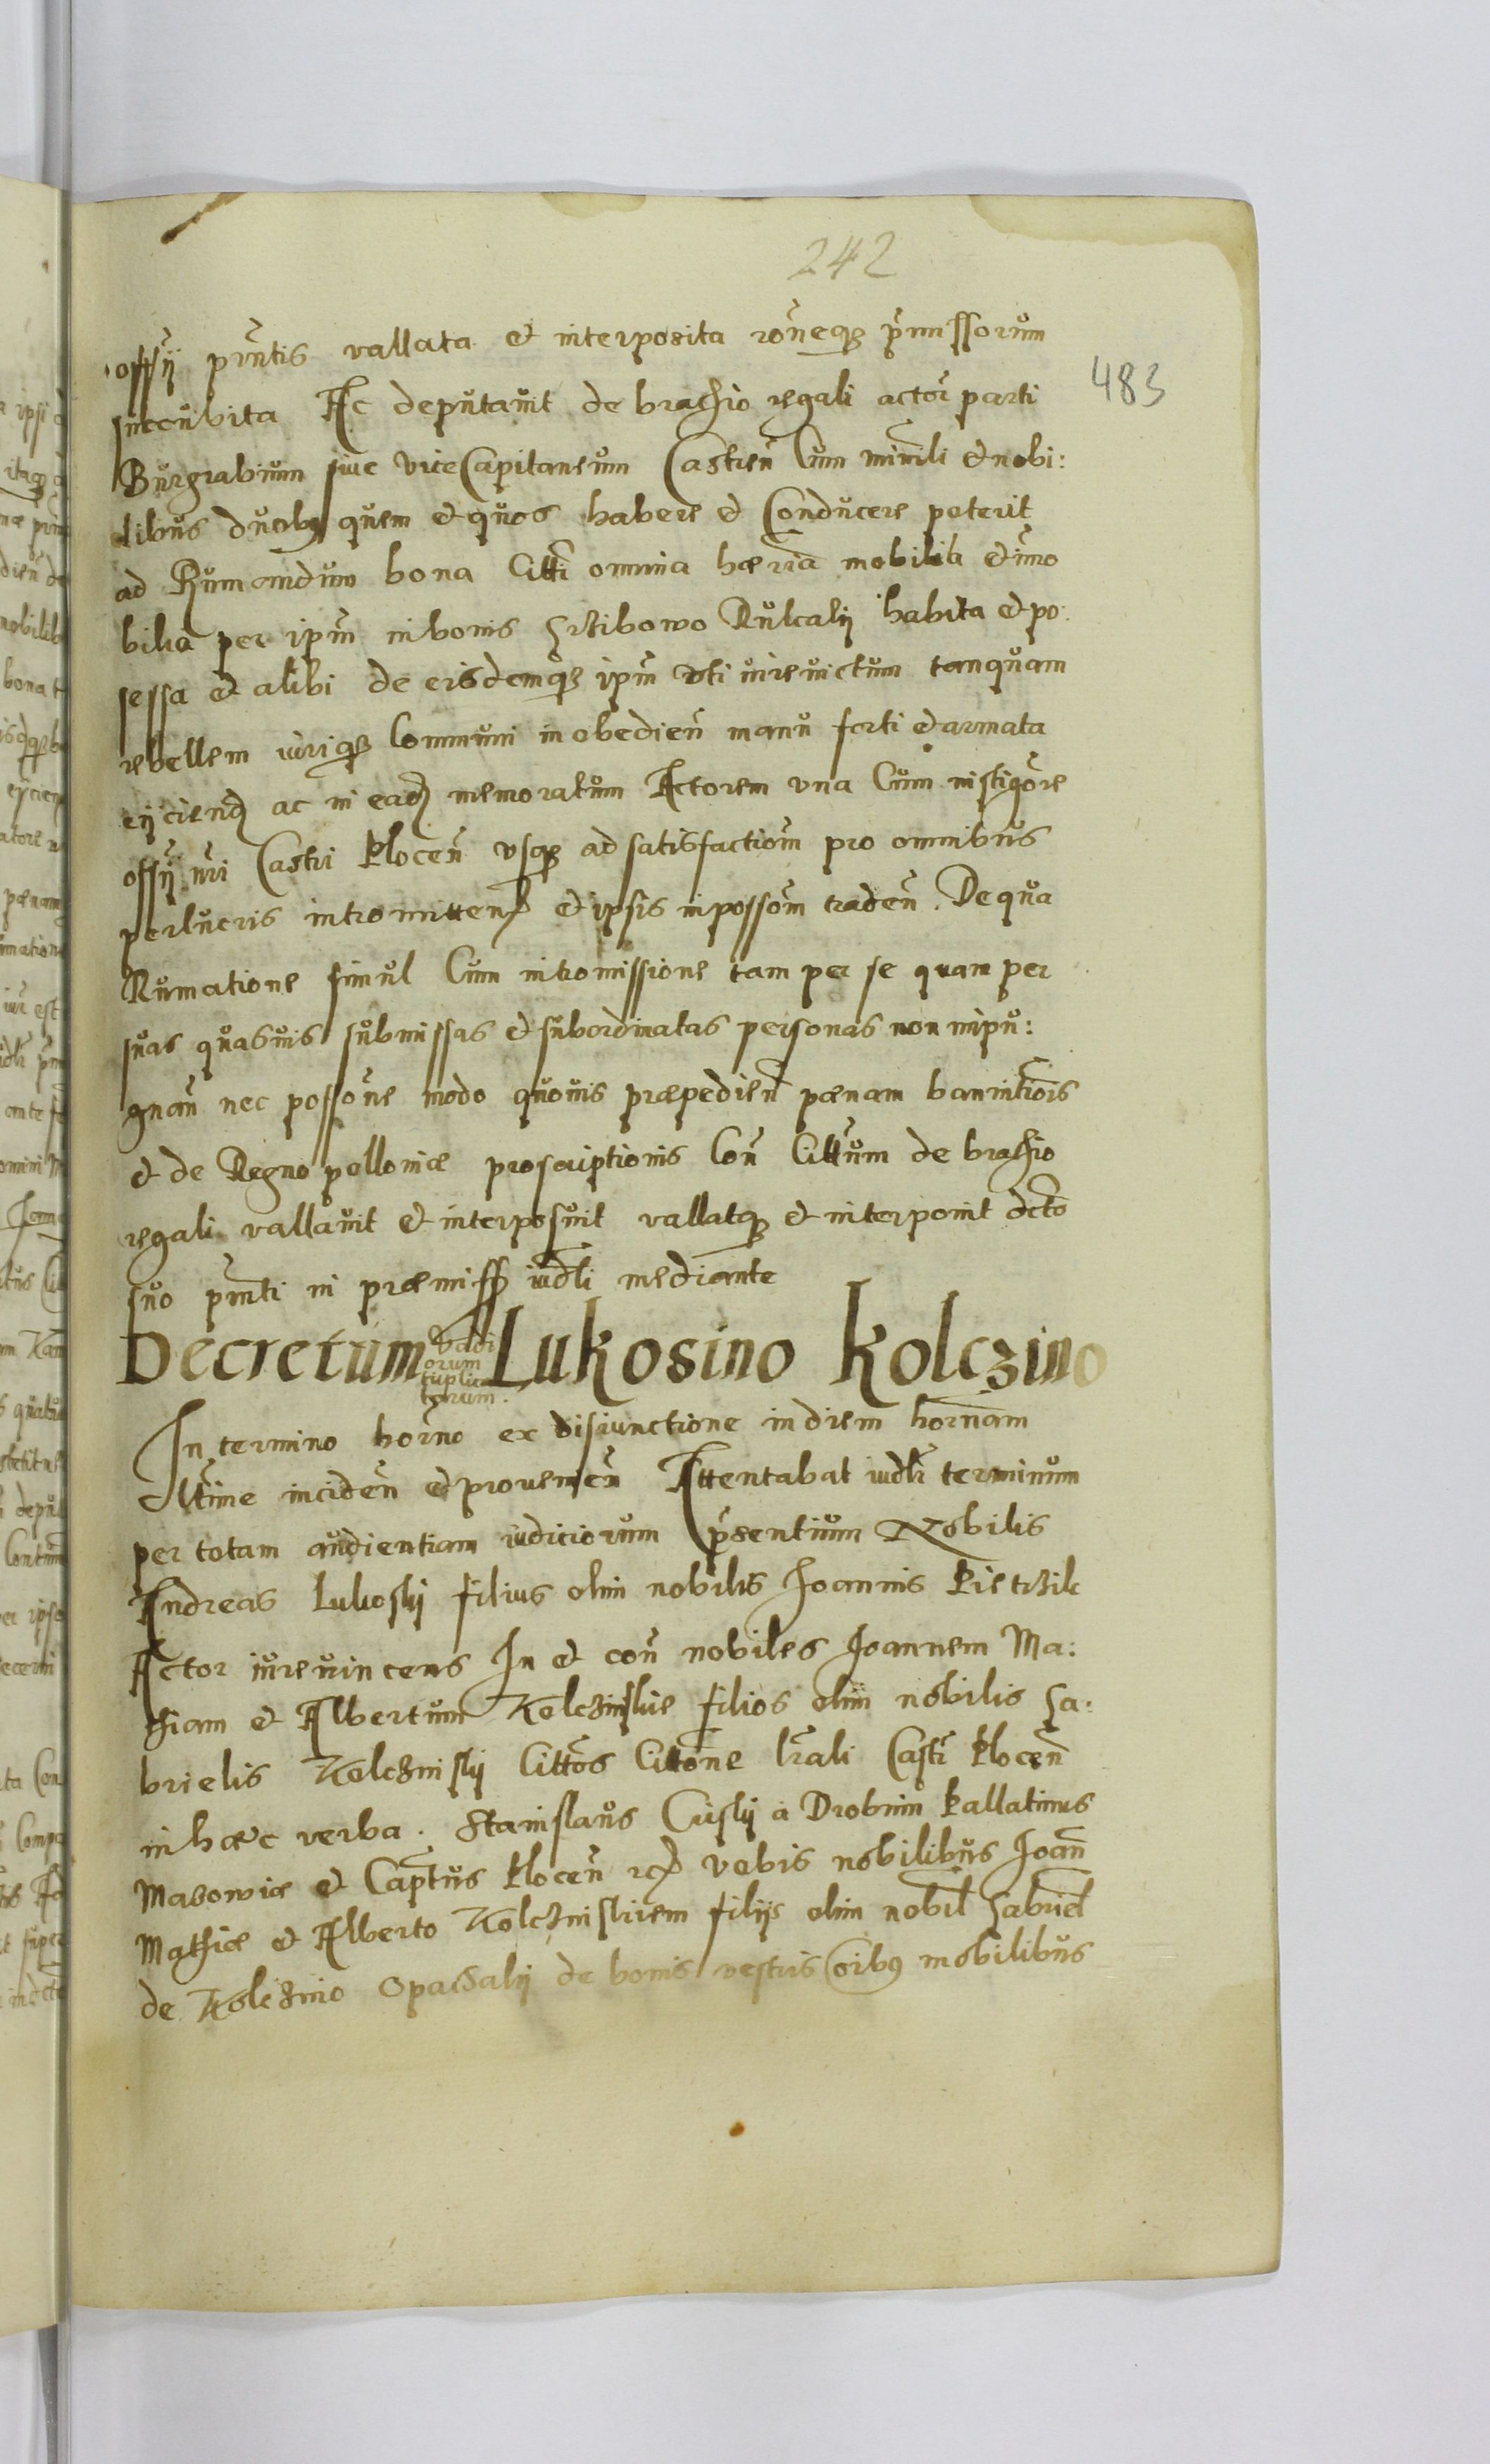 242
483
offÿ pñtis vallata et interposita rõneqȝ p̃missorum
succubita Ac deputavit de brachio regali actori parti
Burgrabium siue ViceCapitaneum Castreñ Cum minrĩli et nobi:
libus duobꝫ quem et quos habere et Conducere poterit
ad Rumandum bona Citti omnia hæria mobilia et im̃o
bilia per ipm̃ in bonis Srzibowo Kulcalij habita et po:
sessa et alibi de eisdemqȝ ipm̃ uti iureuictum tanquam
rebellem iuriqȝ Communi inobedieñ manu forti et armata
eijciend ac in ead memoratum Actorem una Cum instigõre
offÿ nr̃i Castri Ploceñ usqȝ ad satisfactiom̃ pro omnibus
perlucris intromitteñ et ipsis in possom̃ tradeñ. De qua
Rumatione simul Cum intromissione tam per se quam per
suas quasuis submissas et subordinatas personas non inpu:
gnañ nec possõne modo quouis præpedieñ pænam bannitiõis
et de Regno polloniæ proscriptionis Coñ Cittũm de brachio
regali vallauit et interposuit vallatqȝ et interponit dcto
suo pñti in præmiss iudli mediante
Decretum vadiorum tuplicatorum. Lukosino Kolczino
In termino horño ex disiunctione in diem horñam
ltime incideñ et proueñieñ Attentabat iudlr̃ terminum
per totam audientiam iudiciorum p̃sentium Nobilis
Andreas Lukoskj filius olim nobilis Joannis Pietrzik
Actor iureuincens In et coñ nobiles Joannem Ma:
thiam et Albertum Kolczinskie filios olim nobilis Ga:
brielis Kolczinskj Cittos Cittõne lr̃ali Castr̃ Ploceñ
in hæc verba. Stanislaus Ciskj a Drobnin Pallatinus
Masowiæ et Capt̃us Ploceñ etc Vobis nobilibus Joañ
Mathiæ et Alberto Kolczinskiem filijs olim nobil Gabriel
de Kolczino Opaczalij de bonis vestris oibꝫ mobilibus